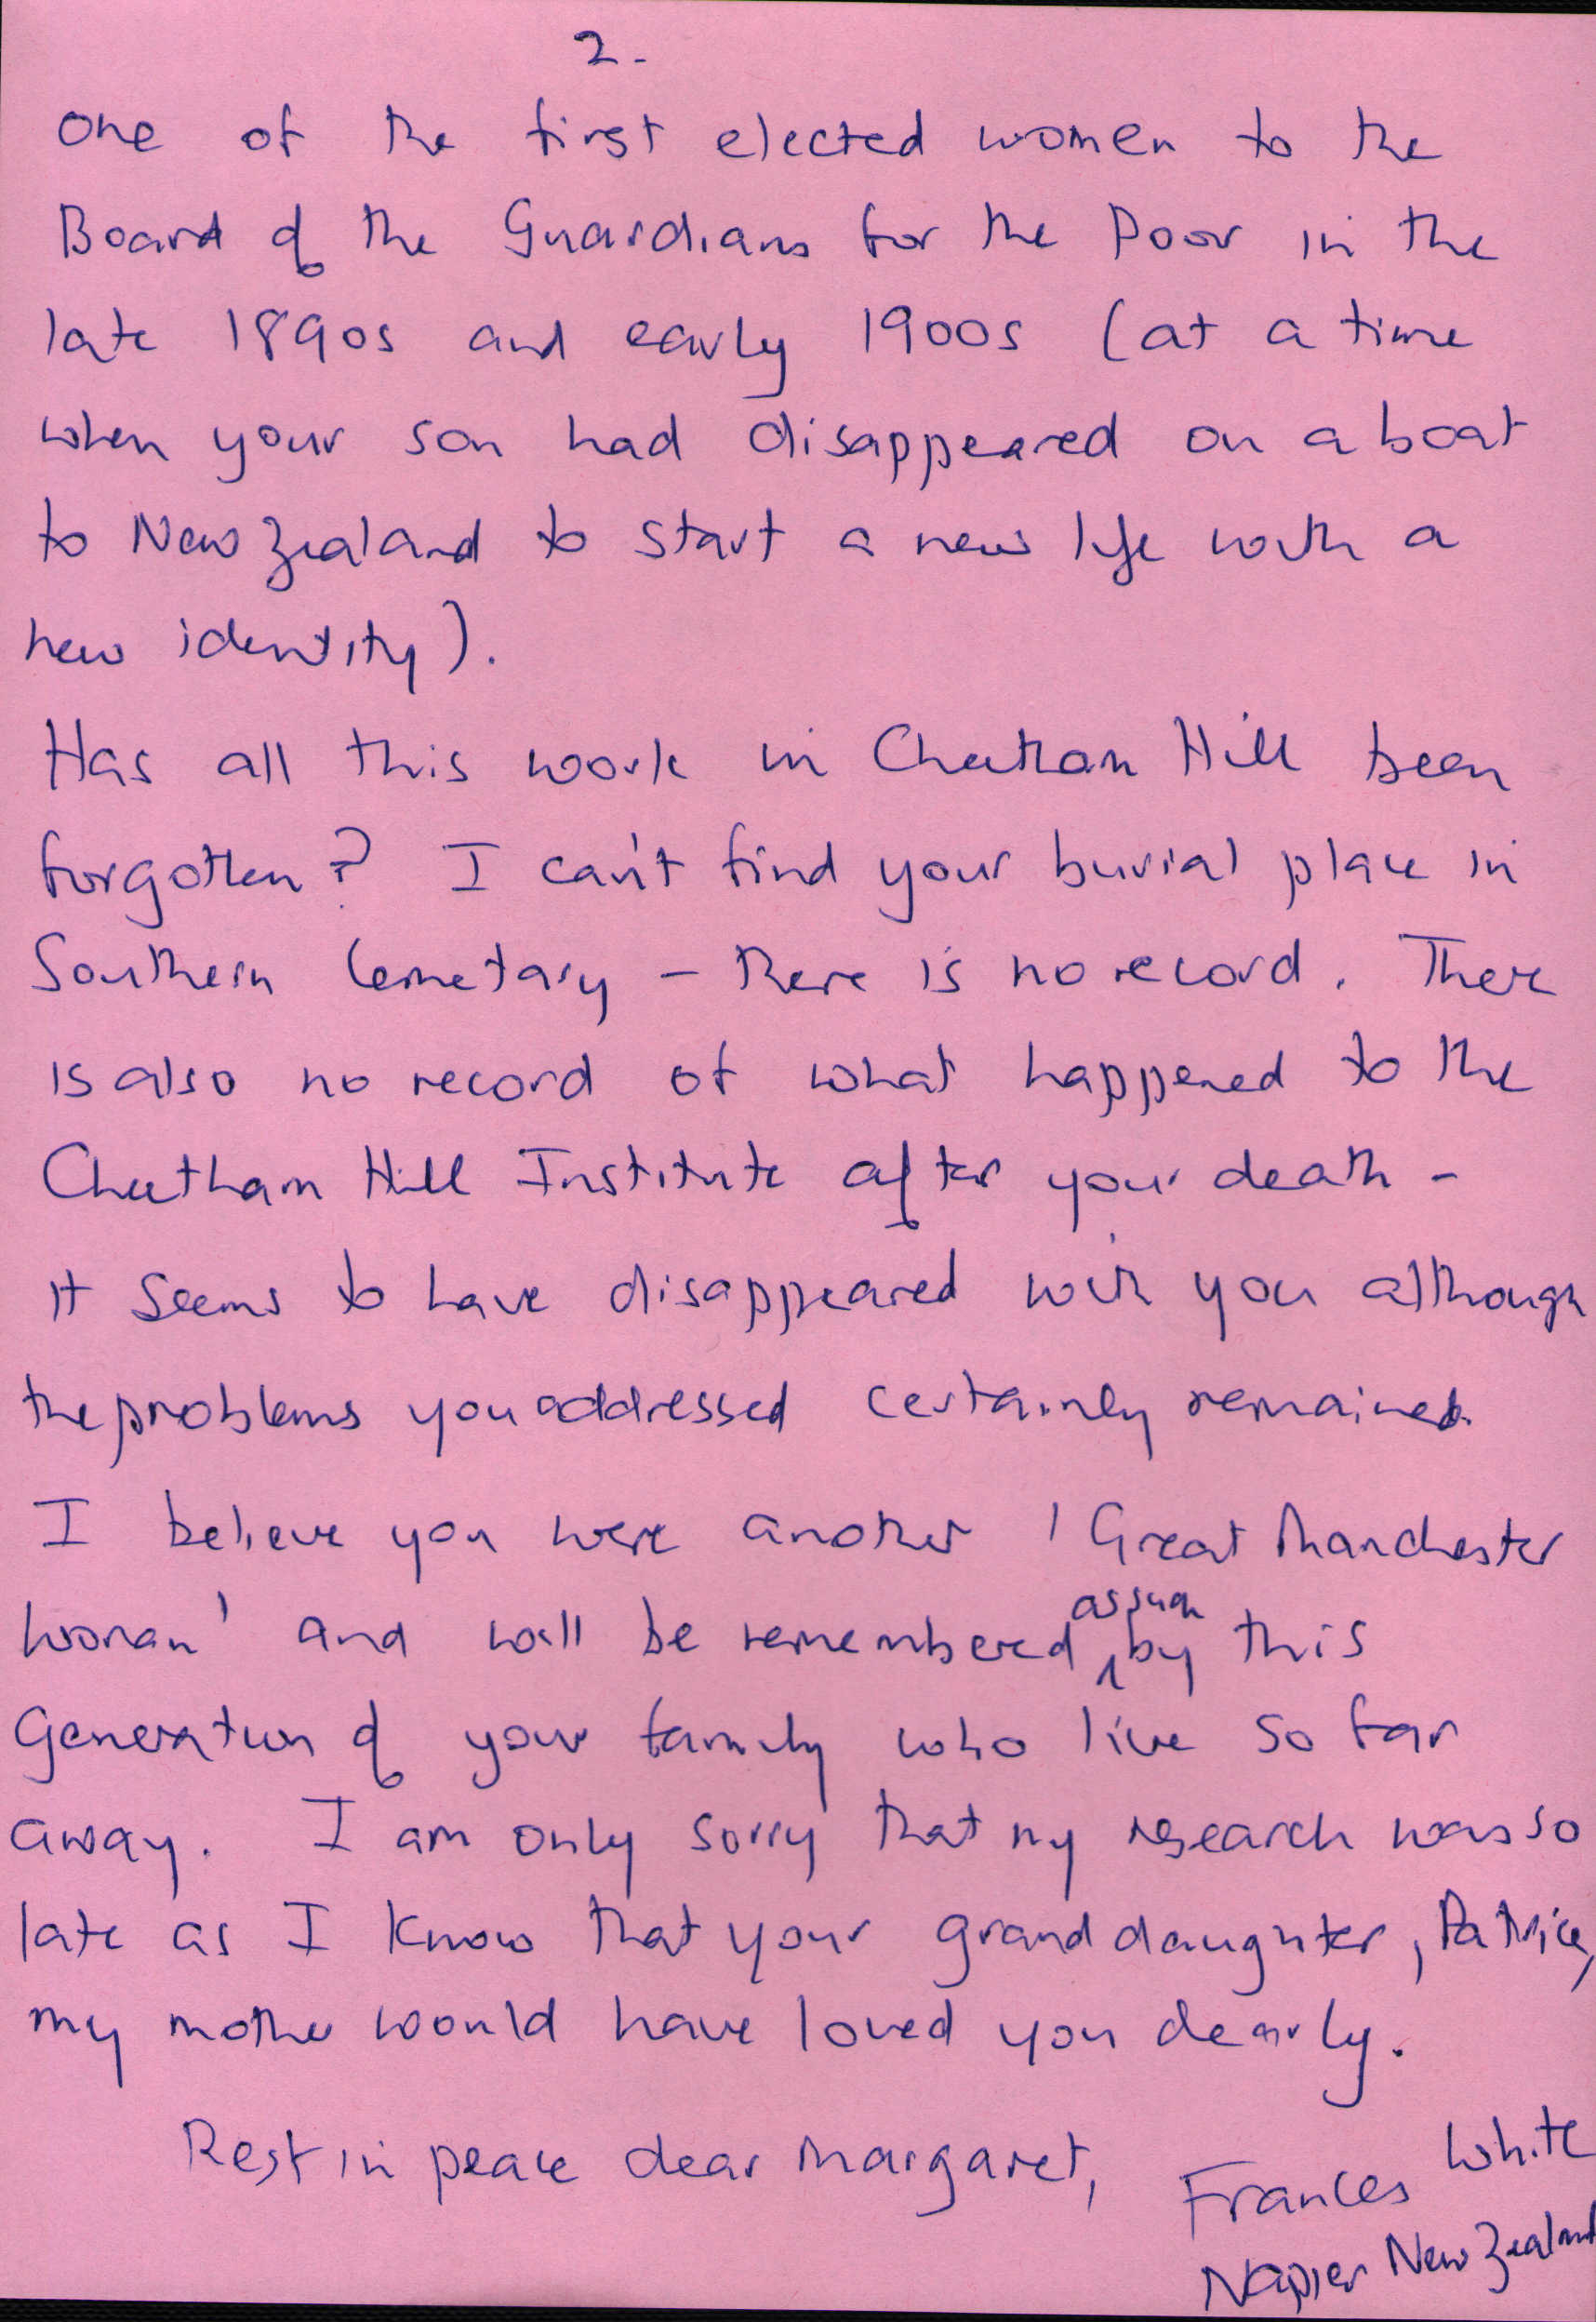 2-
One of the first elected women to the
Board of the Guardians for the Poor in the
late 1890s and early 1900s (at a time
when your son had disappeared on a boat
to New Zealand to start a new life with a
new identity).
Has all this work in Cheetham Hill been
forgotten? I can't find your burial place in
Southern Cemetary - there is no record. There
is also no record of what happened to the
Cheetham Hill Institute after your death -
it seems to have disappeared with you although
the problems you addressed certainly remained.
I believe you were another 'Great Manchester
Woman' and will be remembered as such by this
Generation of your family who live so far
away. I am only sorry that my research was so
late as I know that your granddaughter, Patrice,
my mother would have loved you dearly.
Rest in peace dear Margaret,
Frances White
Napier New Zealand